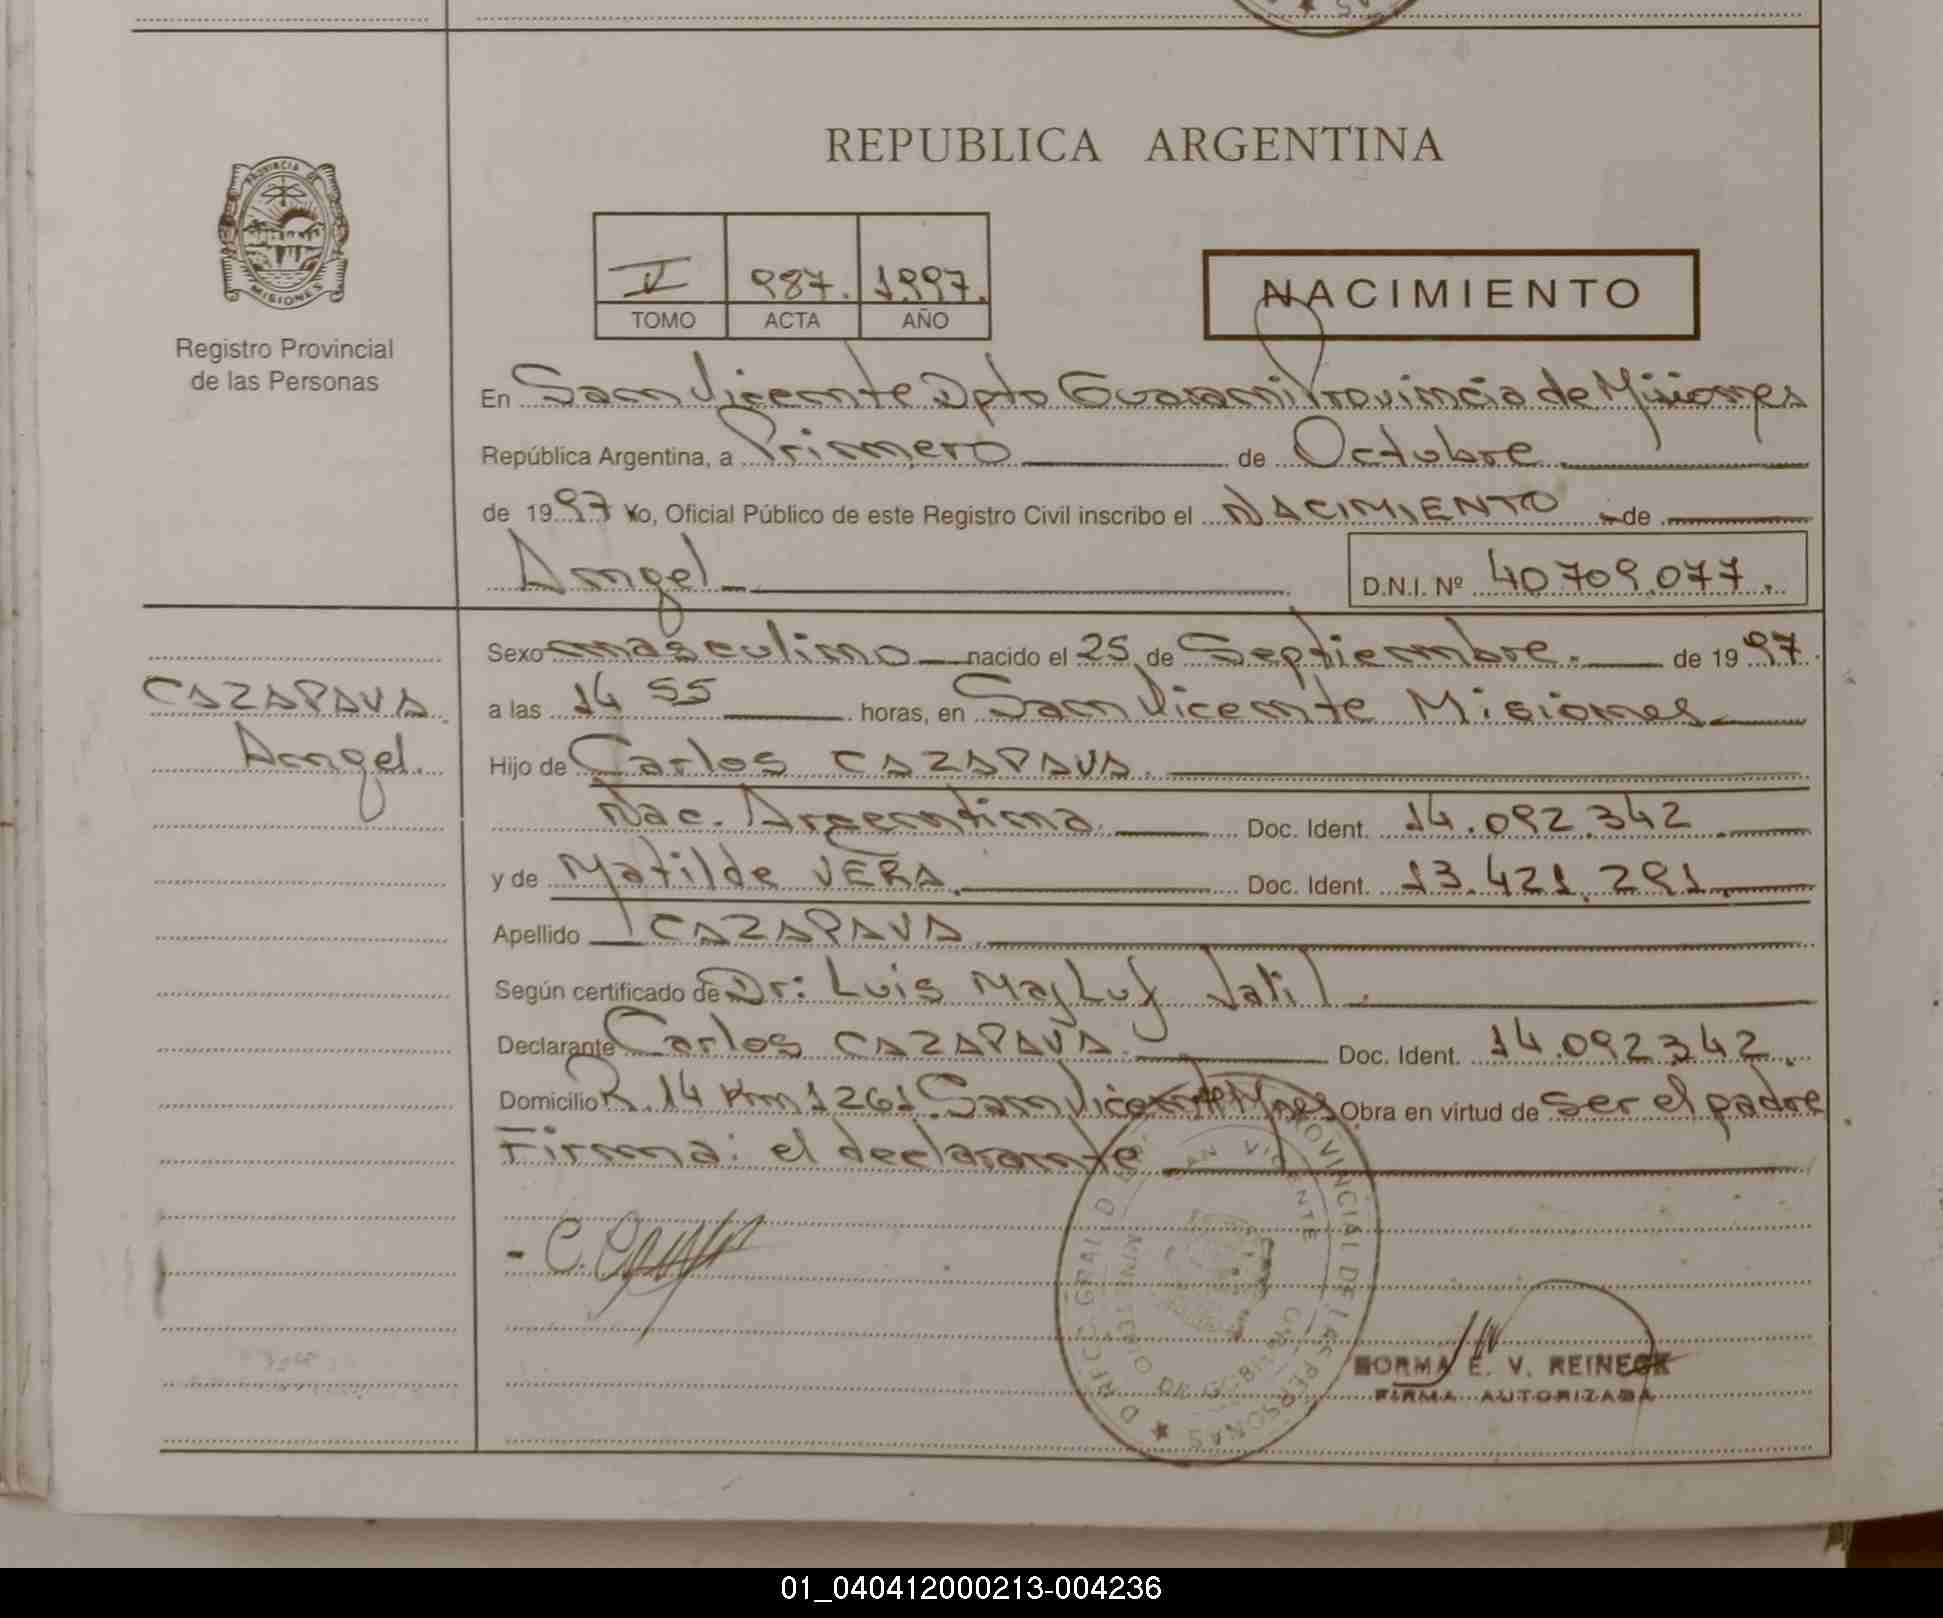 REPUBLICA ARGENTINA
PROVINCIA DE
MISIONES
Registro Provincial
de las Personas
V 987. 1997.
TOMO ACTA AÑO
NACIMIENTO
En San Vicente Dpto Guarani Provincia de Misiones
República Argentina, a Primero de Octubre
de 1997 Yo, Oficial Público de este Registro Civil inscribo el NACIMIENTO de
Angel
D.N.I. Nº 40.709.077.
CAZAPAVA
Angel.
Sexo masculino nacido el 25 de Septiembre. de 1997.
a las 14 55 horas, en San Vicente Misiones
Hijo de Carlos CAZAPAVA.
Nac. Argentina. Doc. Ident. 14.092.342
y de Matilde VERA. Doc. Ident. 13.421.291
Apellido CAZAPAVA
Según certificado de Dr: Luis Majluf Jatil.
Declarante Carlos CAZAPAVA. Doc. Ident. 14.092.342.
Domicilio R.14 Km 1261. San Vicente Mnes Obra en virtud de ser el padre
Firma: el declarante
SAN VICENTE
PROVINCIAL DE LAS PERSONAS
NORMA E. V. REINECK
FIRMA AUTORIZADA
01_040412000213-004236